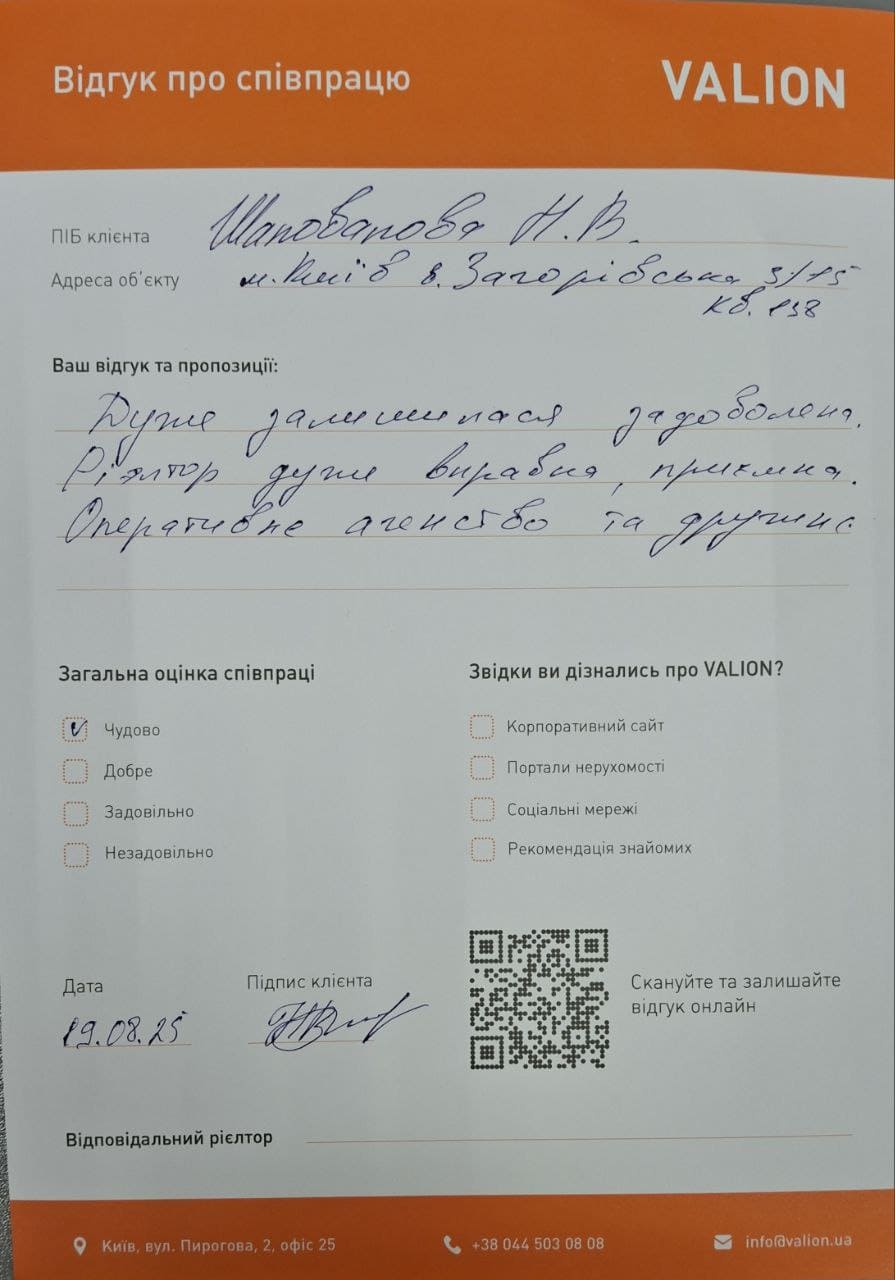 Відгук про співпрацю
VALION
ПІБ клієнта Шаповалова Н.В.
Адреса об'єкту м. Київ в. Загорівська 3/15
кв. 138
Ваш відгук та пропозиції:
Дуже залишилася задоволена.
Ріэлтор дуже вправна, приємна.
Оперативне агенство та дружнє
Загальна оцінка співпраці
Чудово
Добре
Задовільно
Незадовільно
Звідки ви дізнались про VALION?
Корпоративний сайт
Портали нерухомості
Соціальні мережі
Рекомендація знайомих
Дата
19.08.25
Підпис клієнта
Скануйте та залишайте
відгук онлайн
Відповідальний рієлтор
Київ, вул. Пирогова, 2, офіс 25
+38 044 503 08 08
info@valion.ua